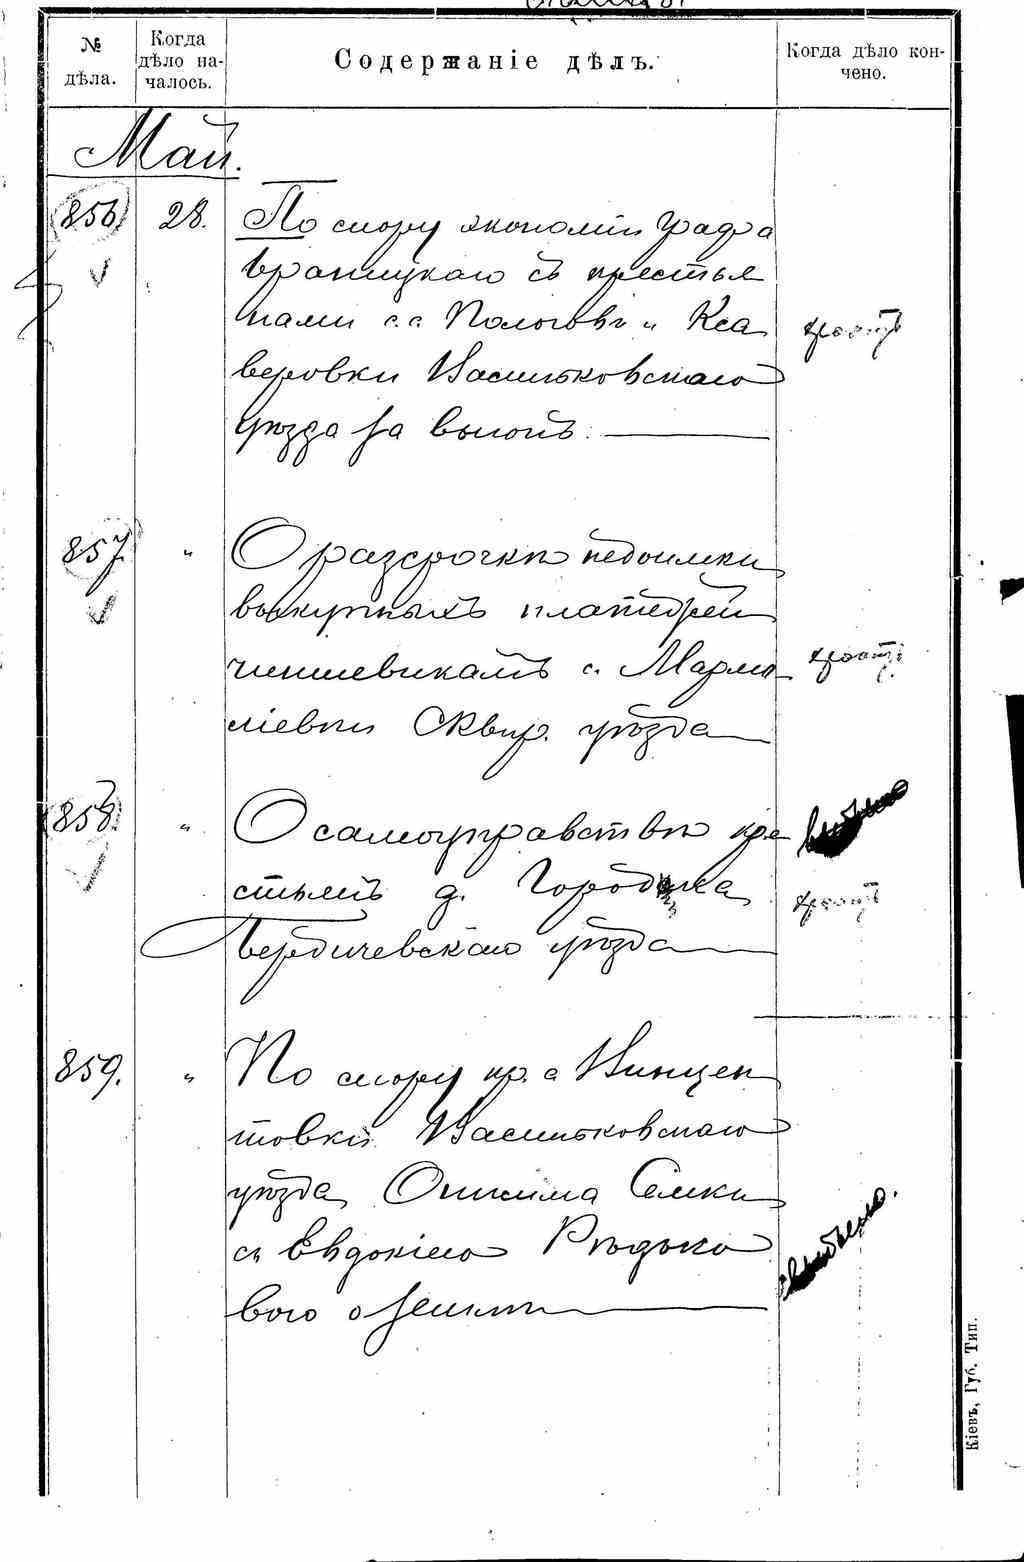 № дѣла.
Когда дѣло на-
чалось.
Содержаніе дѣлъ.
Когда дѣло кон-
чено.
Май.
856 28. По спору экономіи графа
Браницкаго съ крестья
нами с.с. Пологовъ и Кса
веровки Васильковскаго
уѣзда за выгонъ.
857 " О разсрочкѣ недоимки
выкупныхъ платежей
чиншевикамъ с.
Сквир. уѣзда
858. " О самоуправствѣ кре
стьянъ д.
Бердичевскаго уѣзда
859. " По спору кр. с Винцен
товки Васильковскаго
уѣзда Онисима Семки
съ Евдокіею Рѣдько
вою о землѣ
Кіевъ, Губ. Тип.